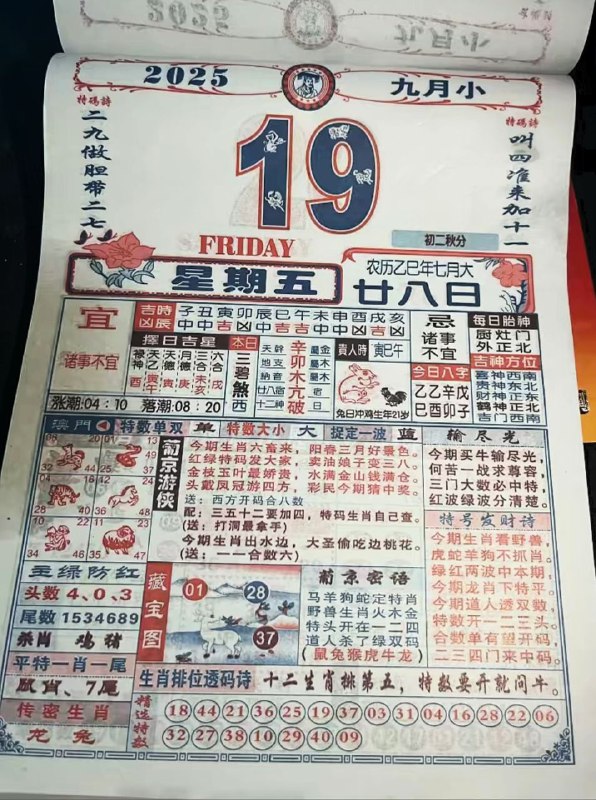 2025
九月小
特碼詩
二九做胆带二七
特碼詩
叫四准来加十一
19
初二秋分
FRIDAY
星期五
农历乙巳年七月大
廿八日
宜
诸事不宜
吉時
凶辰
子丑寅卯辰巳午未申酉戌亥
擇日吉星
本日
三碧煞西
辛卯木亢破
貴人時
寅巳午
兔日冲鸡生年21岁
忌
诸事
不宜
每日胎神
厨灶门
外正北
今日八字
乙乙辛戊
巳酉卯子
吉神方位
喜神西南
贵神东北
财神正东
鹤神正北
吉门西南
涨潮:04:10 落潮:08:20
澳門
特数单双 单
特数大小 大
捉定一波 蓝
输尽光
葡京游侠
今期生肖六畜来， 阳春三月好景色。
红绿特码发大家， 卖油娘子变三八。
金枝玉叶最娇贵， 水满金山钱满仓。
头戴凤冠游四方， 彩民今期猜中奖。
送：西方开码合八数
配：三五十二要加四，特码生肖自己查。
(送：打洞最拿手)
今期生肖出水边，大圣偷吃边桃花。
(送：一一合数六)
今期买牛输尽光，
何苦一战求尊容，
三门大数必中特，
红波绿波分清楚。
特号发财诗
今期生肖看野兽，
虎蛇羊狗不抓肖。
绿红两波中本期；
今期龙肖下特平。
今期道人透双数，
特数开一二三头。
合数单有望开码，
二三四门来中码。
主绿防红
头数4、0、3
尾数1534689
杀肖 鸡猪
平特一肖一尾
鼠肖、7尾
传密生肖
龙 兔
藏宝图
01
28
37
葡京密语
马羊狗蛇定特肖
野兽生肖火木金
特头开在一二四
道人杀了绿双码
(鼠兔猴虎牛龙)
生肖排位透码诗
十二生肖排第五，特数要开就问牛。
精选特数
18 44 21 36 25 19 37 03 31 04 16 28 22 06
32 27 38 10 29 40 09